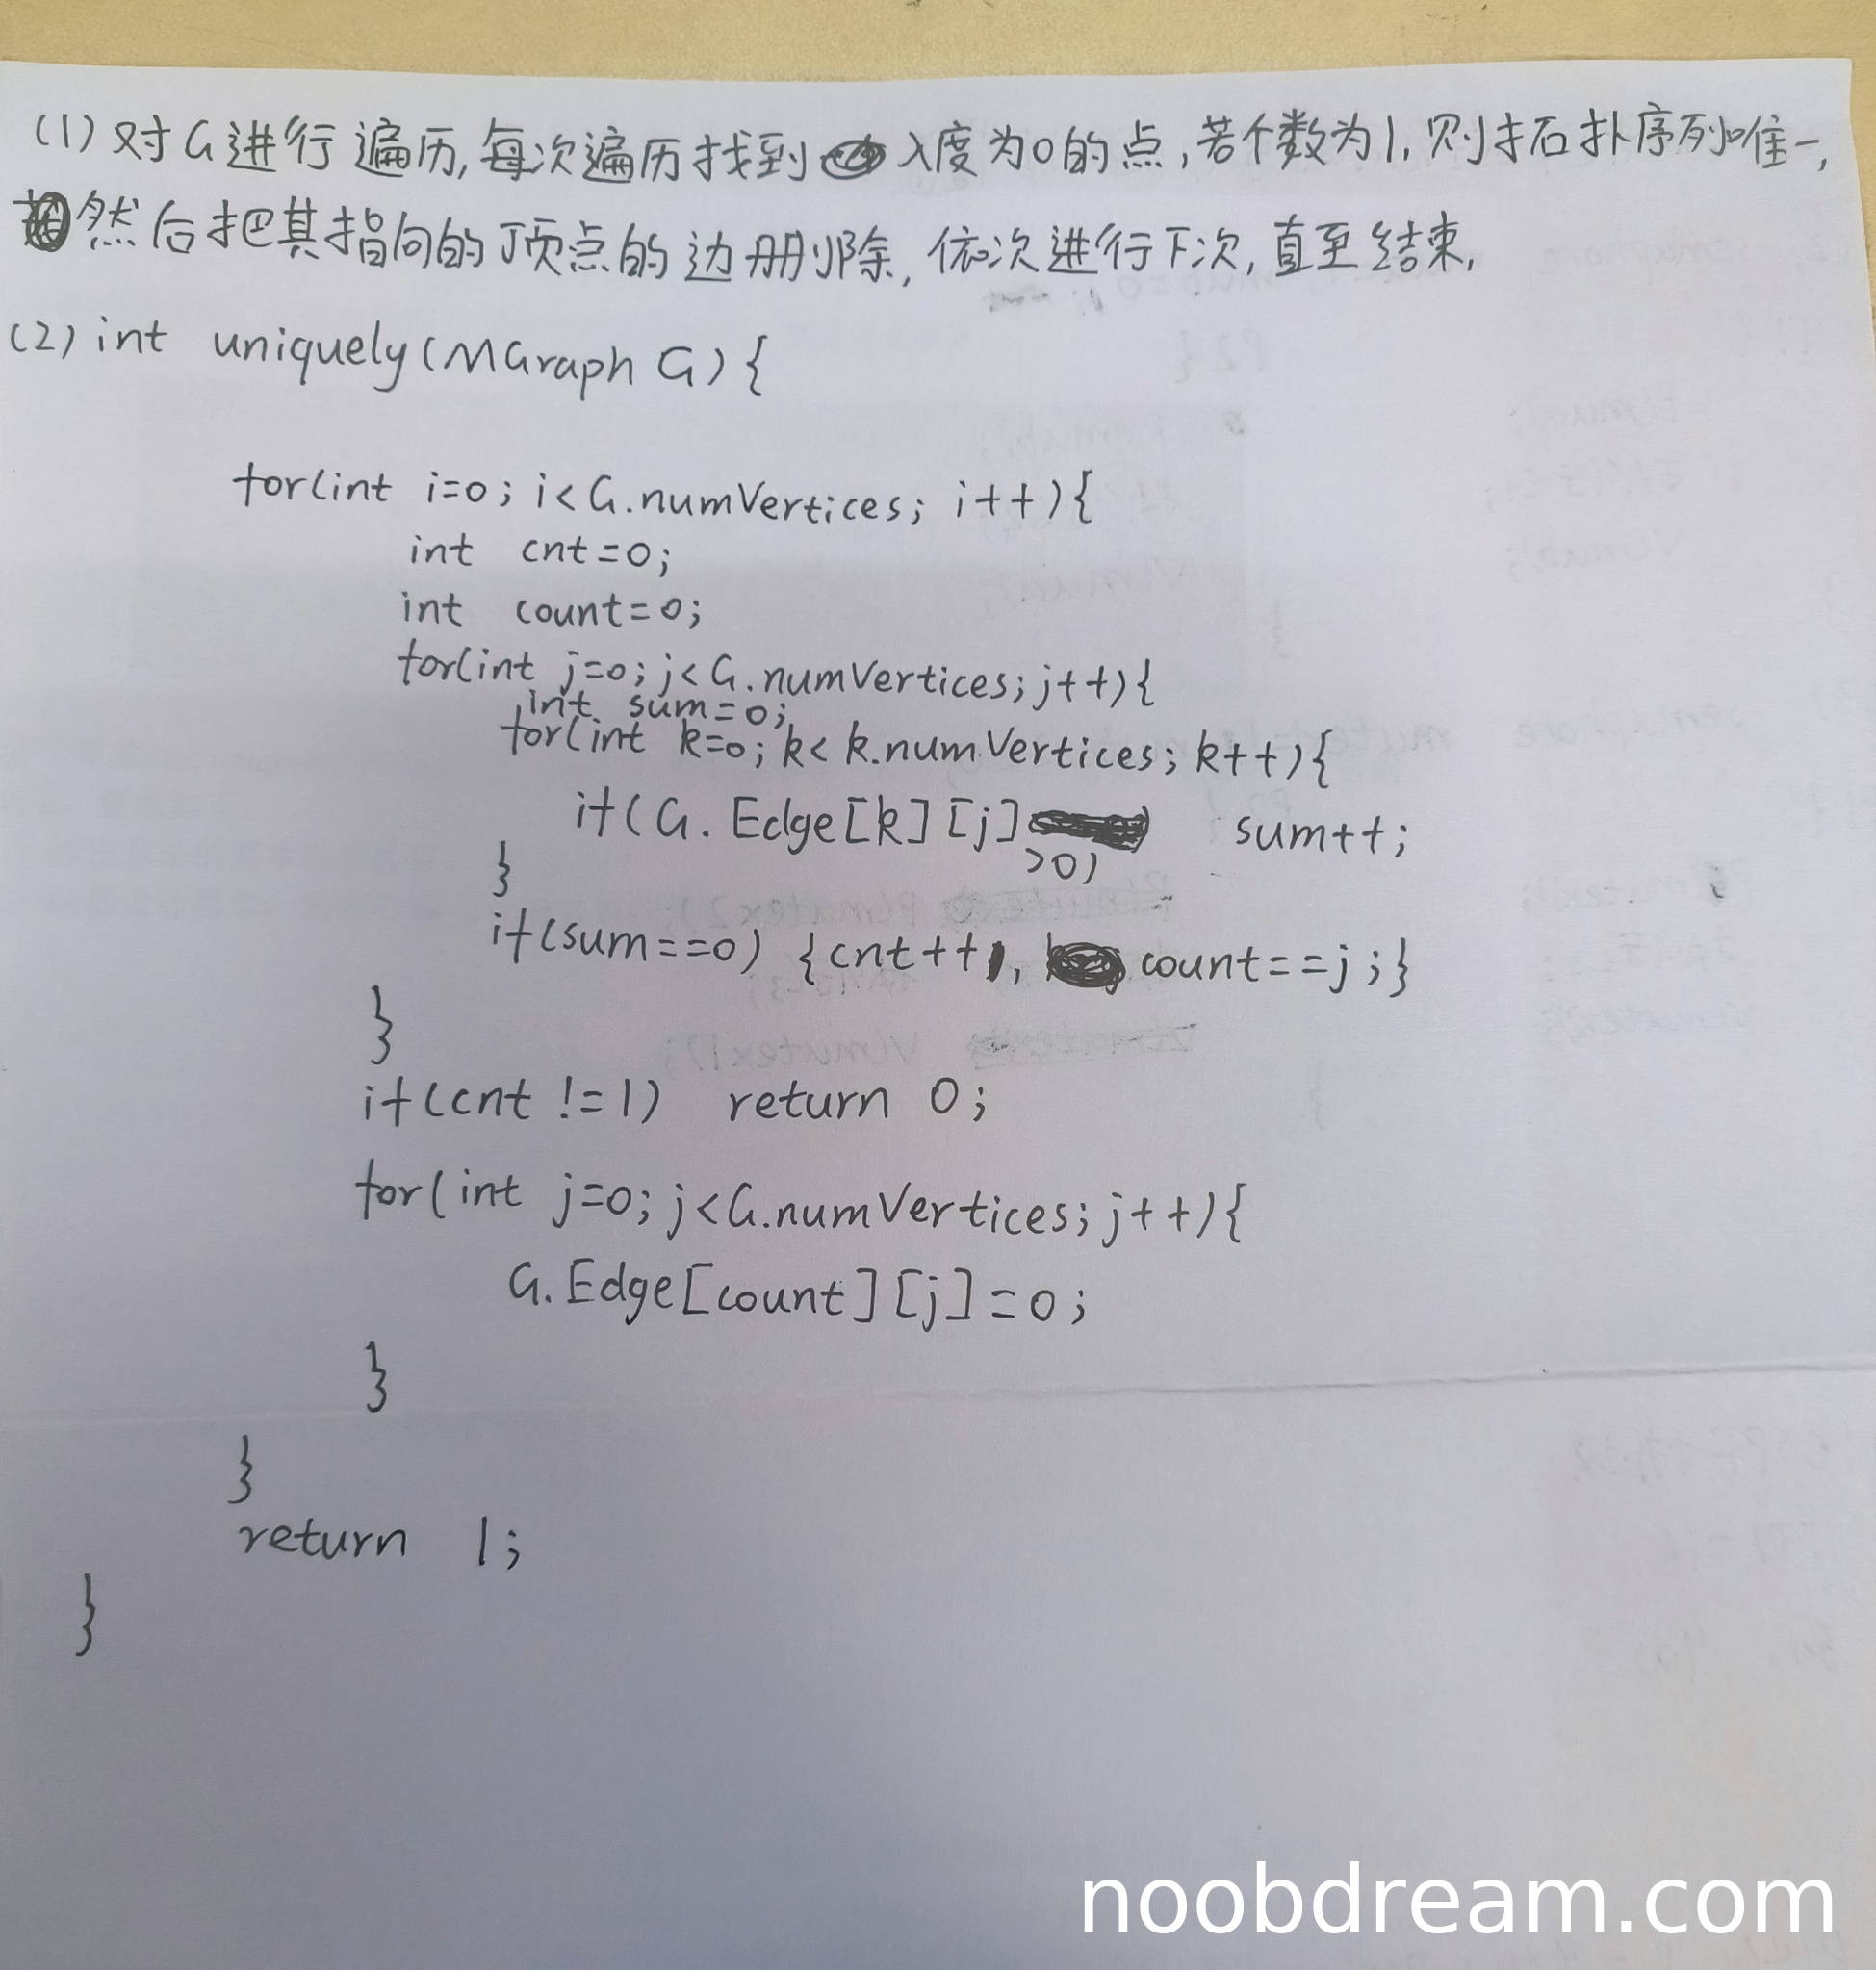 (1) 对G进行遍历,每次遍历找到入度为0的点,若个数为1,则拓扑序列唯一,
然后把其指向的顶点的边删除,依次进行下次,直至结束,
(2) int uniquely(MGraph G){
for(int i=0; i<G.numVertices; i++){
int cnt=0;
int count=0;
for(int j=0; j<G.numVertices; j++){
int sum=0;
for(int k=0; k<k.numVertices; k++){
if(G.Edge[k][j]>0) sum++;
}
if(sum==0) {cnt++, count==j;}
}
if(cnt !=1) return 0;
for(int j=0; j<G.numVertices; j++){
G.Edge[count][j]=0;
}
}
return 1;
}
noobdream.com